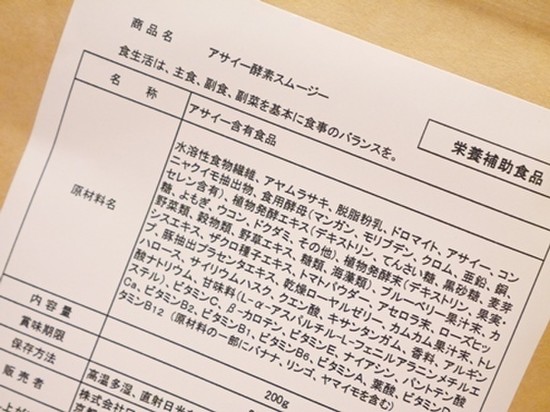 商品名 アサイー酵素スムージー
食生活は、主食、副食、副菜を基本に食事のバランスを。
栄養補助食品
名称 アサイー含有食品
原材料名
水溶性食物繊維、アヤムラサキ、脱脂粉乳、ドロマイト、アサイー、コン
ニャクイモ抽出物、食用酵母(マンガン、モリブデン、クロム、亜鉛、銅
セレン含有)、植物発酵エキス(デキストリン、てんさい糖、黒砂糖、麦芽
糖、よもぎ、ウコン、ドクダミ、その他)、植物発酵末(デキストリン、果実・
野菜類、穀物類、野草エキス、糖類、海藻類)、ブルーベリー果汁末、カ
シスエキス、ザクロ種子エキス、トマトパウダー、アセロラ末、ローズヒッ
プ、豚抽出プラセンタエキス、乾燥ローヤルゼリー、カムカム果汁末、トレ
ハロース、サイリウムハスク、クエン酸、キサンタンガム、香料、アルギン
酸ナトリウム、甘味料(L-α-アスパルチル-L-フェニルアラニンメチルエ
ステル)、ビタミンC、β-カロテン、ビタミンE、ナイアシン、パントテン酸
Ca、ビタミンB2、ビタミンB1、ビタミンB6、ビタミンA、葉酸、ビタミンD
タミンB12 (原材料の一部にバナナ、リンゴ、ヤマイモを含む)
内容量 200g
賞味期限
保存方法 高温多湿、直射日光
販売者 株式会社